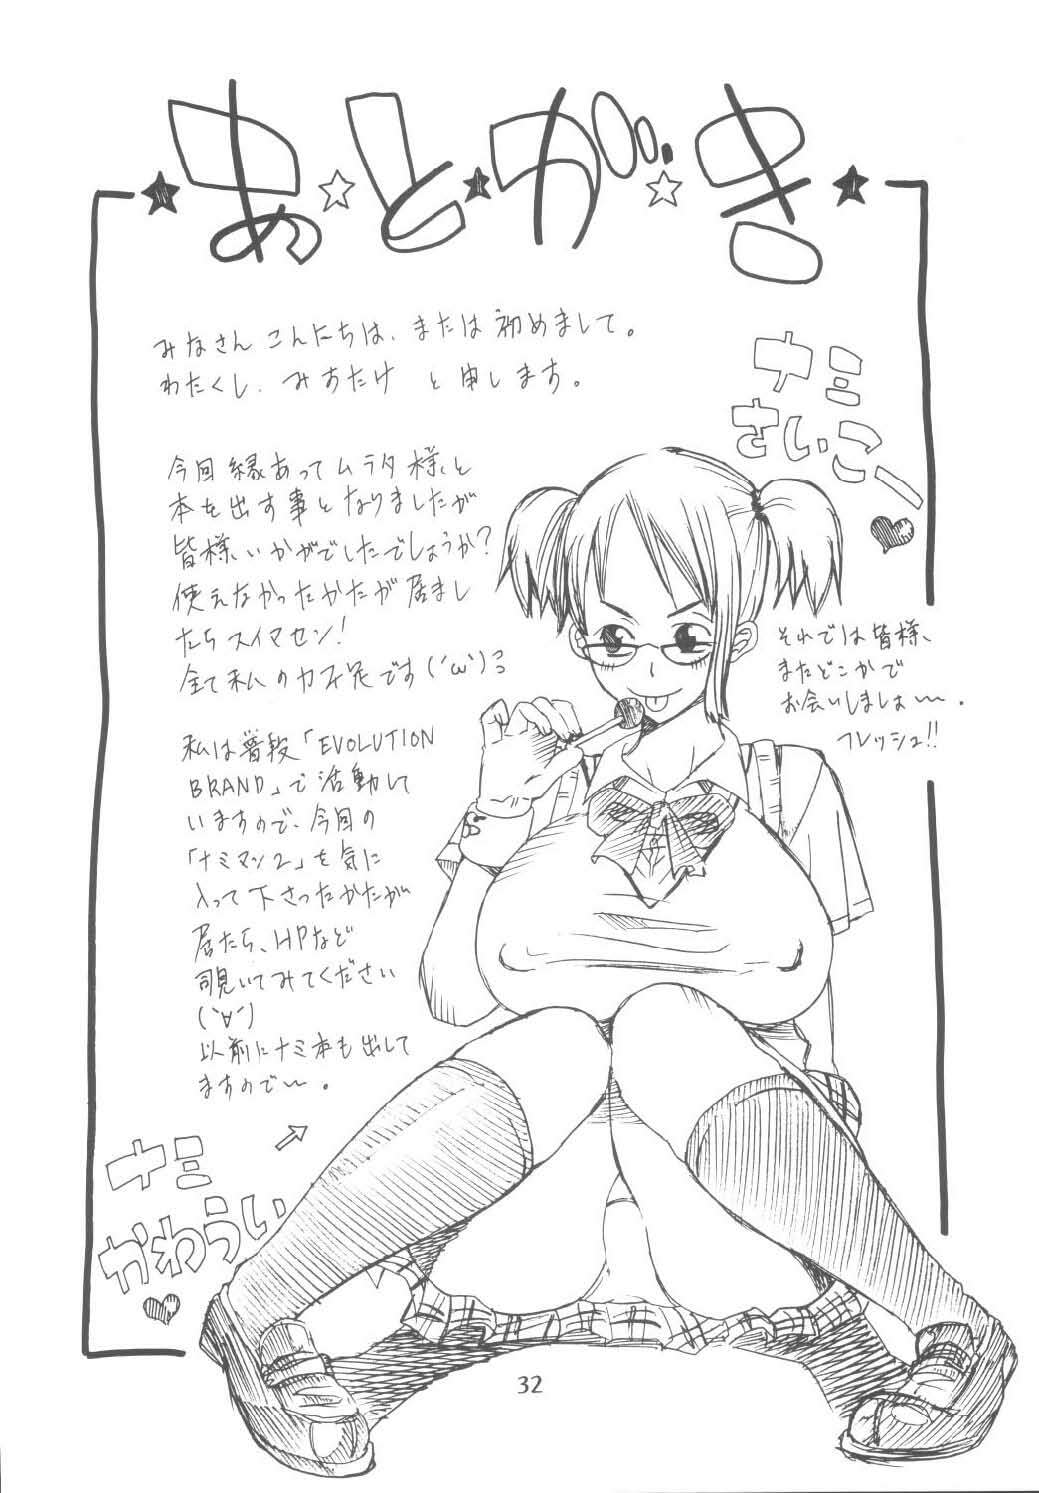 あとがき
みなさん こんにちは、または初めまして。
わたくし、みすたけ と申します。
今回縁あってムラタ様と
本を出す事となりましたが
皆様いかがでしたでしょうか？
使えなかったかたが居まし
たらスイマセン！
全て私の力不足です(´ω`)
私は普段「EVOLUTION
BRAND」で活動して
いますので、今回の
「ナミマン2」を気に
入って下さったかたが
居たら、HPなど
覗いてみてください
(`∀´)
以前にナミ本も出して
ますので〜。
ナミ
かわうい
ナミ
さいこー
それでは皆様、
またどこかで
お会いしましょ〜。
フレッシュ!!
32